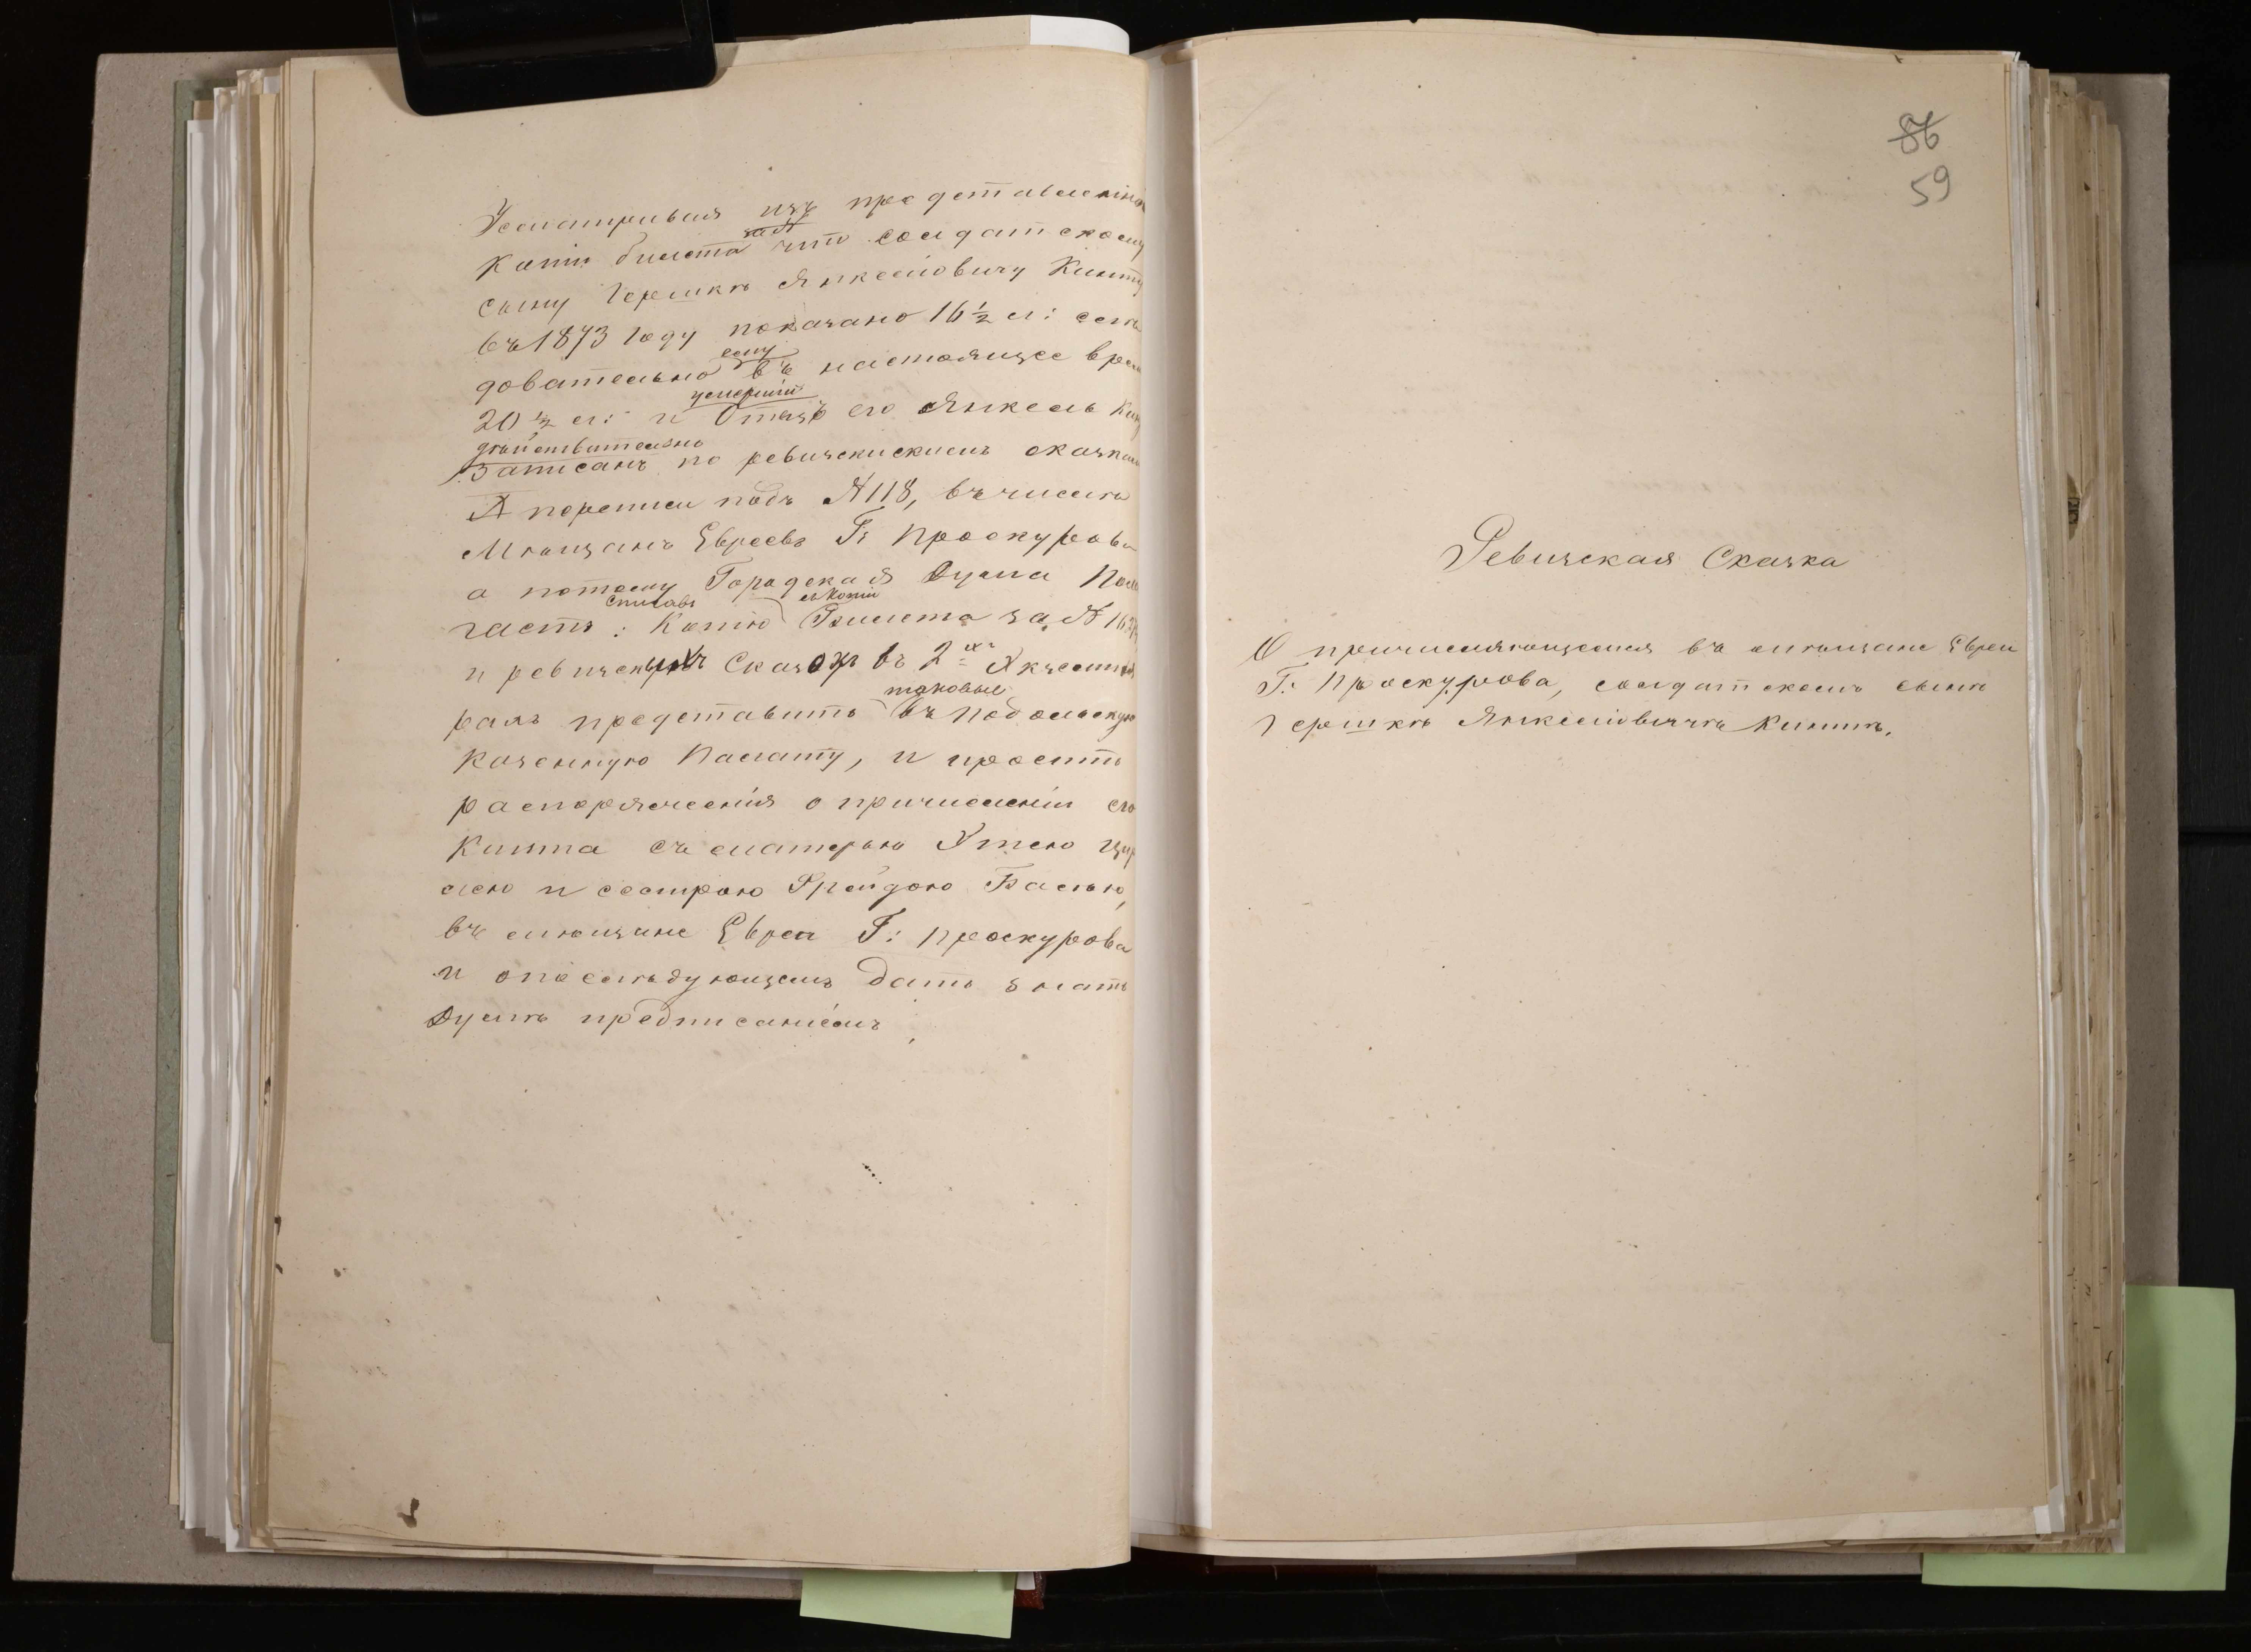 Усматривая изъ представленно
копіи билета за № что солдатскому
сыну Гершкѣ Янкеліовичу Кимту
въ 1873 году показано 16 ½ л: слѣ
довательно ему въ настоящее врем
20 ½ л: и умершій Отецъ его Янкель Ким
дѣйствительно записанъ по ревизскискимъ сказкам
X переписи подъ № 118, въ числѣ
Мѣщанъ Евреевъ Г: Проскурова
а потому Городская Дума Пола
гаетъ: Списавъ Копію съ копіи Билета за №
и ревизскихъ Сказокъ въ 2хъ Экземпля
рахъ представить таковые въ Подольскую
Казенную Палату, и просить
распоряженія о причисленіи его
Кимта съ матерью Утею Цир
лею и сестрою Фрейдою Басью,
въ мѣщане Евреи Г: Проскурова
и опослѣдующемъ дать знать
Думѣ предписаніемъ,
86
59
Ревизская Сказка
О причисляющемся въ мѣщане Евреи
Г: Проскурова, солдатскомъ сынѣ
Гершкѣ Янкеліовичѣ Кимтѣ.